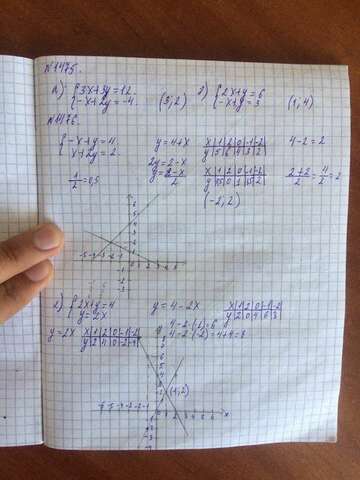 №1475.
а) {3x+3y=12. {-x+2y=-4. (3;2) б) {2x+y=6 {-x+y=3 (1,4)
№1476.
{-x+y=4 {x+2y=2. y=4+x x|1|2|0|-1|-2 y|5|6|4|3|2 4-2=2
2y=2-x
1/2=0,5 y=2-x/2 x|1|2|0|-1|-2 2+2/2=4/2=2
(-2,2)
2) {2x+y=4 {y=2x y=4-2x x|1|2|0|-1|-2 y|2|0|4|6|8
y=2x x|1|2|0|-1|-2 y|2|4|0|-2|-4 4-2·(-1)=6
4-2·(-2)=4+4=8
(1,2)